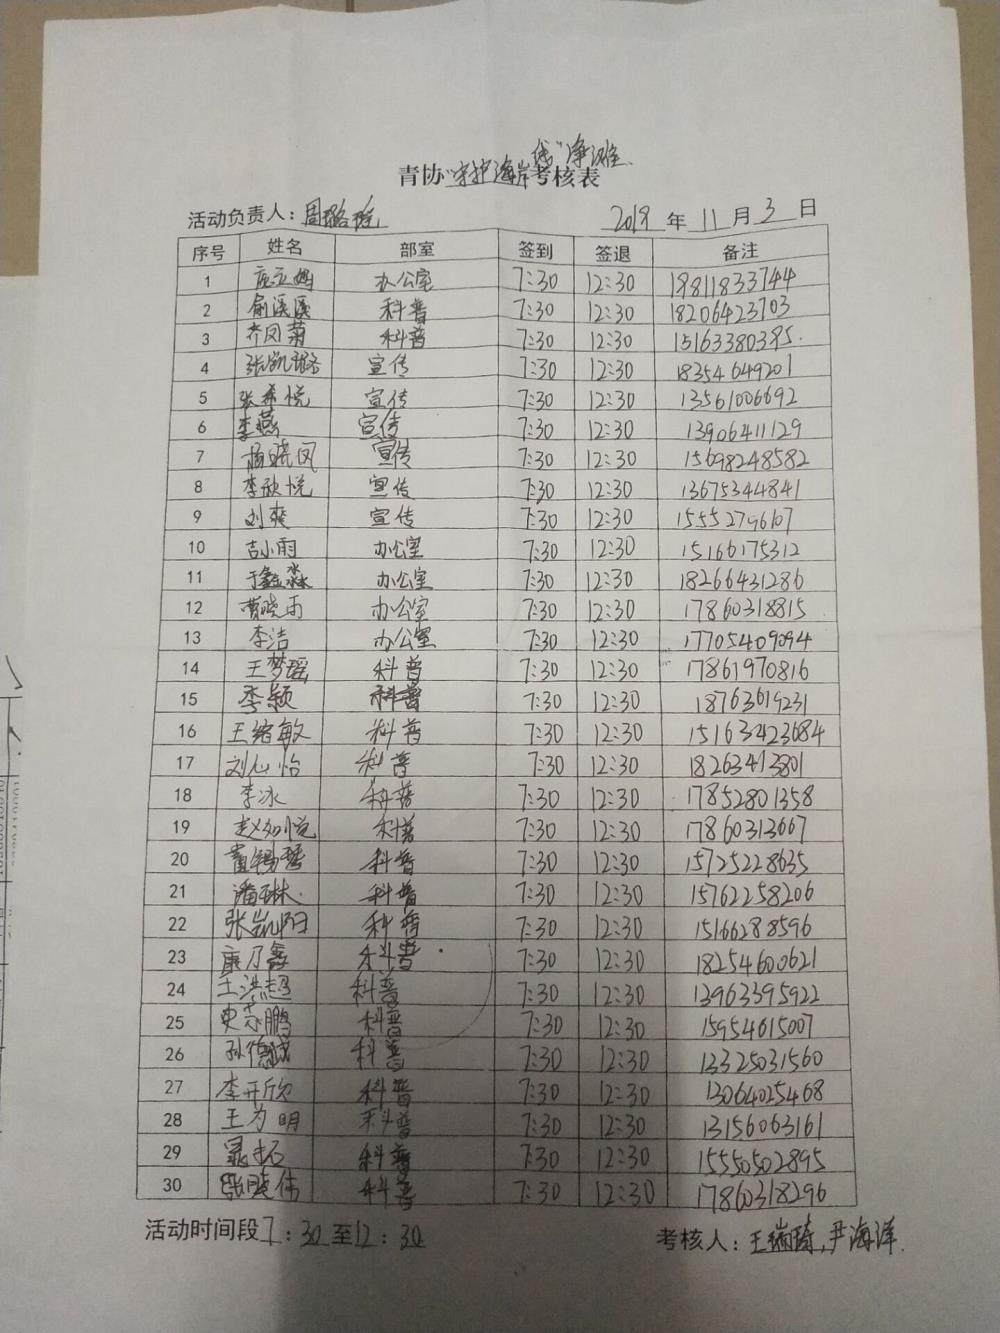 青协"守护海岸线"净滩考核表
活动负责人：周璐瑶 2019年11月3日
序号 姓名 部室 签到 签退 备注
1 办公室 7:30 12:30 19811833744
2 俞溪溪 科普 7:30 12:30 18206423703
3 齐凤菊 科普 7:30 12:30 15163380395.
4 张凯璐 宣传 7:30 12:30 18354649201
5 张希悦 宣传 7:30 12:30 13561006692
6 李燕 宣传 7:30 12:30 13906411129
7 杨晓凤 宣传 7:30 12:30 15698248582
8 李欣悦 宣传 7:30 12:30 13675344841
9 刘爽 宣传 7:30 12:30 15552796107
10 吉小雨 办公室 7:30 12:30 15166175312
11 于鑫淼 办公室 7:30 12:30 18266431286
12 曹晓雨 办公室 7:30 12:30 17860318815
13 李洁 办公室 7:30 12:30 17705409094
14 王梦瑶 科普 7:30 12:30 17861970816
15 李颖 科普 7:30 12:30 18763619231
16 王绪敏 科普 7:30 12:30 15163423684
17 刘心怡 科普 7:30 12:30 18263413801
18 李冰 科普 7:30 12:30 17852801358
19 赵如悦 科普 7:30 12:30 17860313667
20 科普 7:30 12:30 15725228635
21 潘琳 科普 7:30 12:30 15762258206
22 张凯阳 科普 7:30 12:30 15166288596
23 康乃鑫 科普 7:30 12:30 18254600621
24 王洪超 科普 7:30 12:30 13963395922
25 史苏鹏 科普 7:30 12:30 15954615007
26 孙德诚 科普 7:30 12:30 13325031560
27 李开欣 科普 7:30 12:30 13064025468
28 王为明 科普 7:30 12:30 13156063161
29 科普 7:30 12:30 15550502895
30 张晓伟 科普 7:30 12:30 17860318296
活动时间段7：30至12：30 考核人：王瑞琦，尹海洋